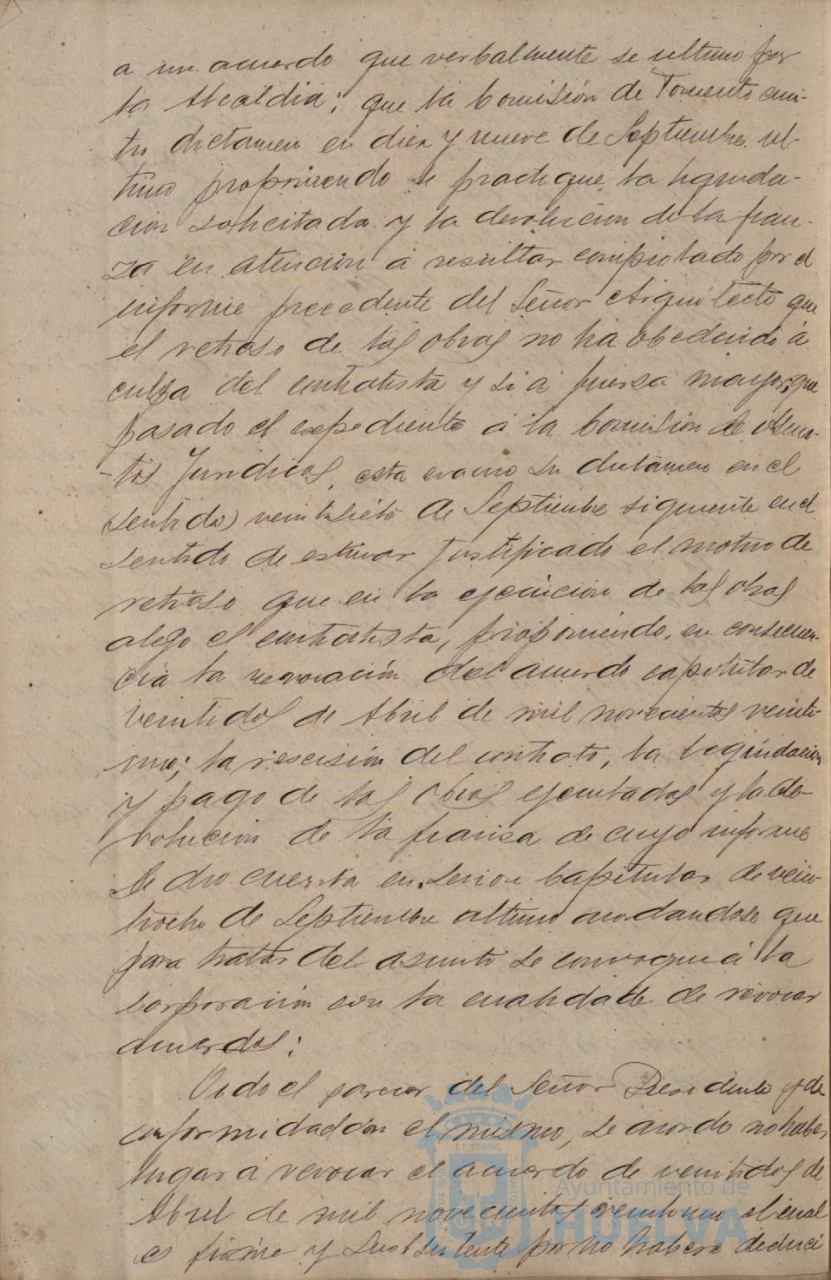 a un acuerdo que verbalmente se ultimo por
la Alcaldia; que la Comisión de Fomento emi-
tio dictamen en diez y nueve de Septiembre ul-
timo proponiendo se practique la liquida-
cion solicitada y la devolucion de la fian-
za en atencion á resultar comprobado por el
informe precedente del Señor Arquitecto que
el retraso de las obras no ha obedecido á
culpa del contratista y si á fuerza mayor; que
pasado el expediente á la Comision de Asun-
-tos Juridicos, esta evacuo su dictamen en el
(sentido) veintisiete de Septiembre siguiente en el
sentido de estimar justificado el motivo de
retraso que en la ejecucion de las obras
alego el contratista, proponiendo, en consecuen-
cia la revocación del acuerdo capitular de
veintidos de Abril de mil novecientos veinti-
uno; la rescisión del contrato, la liquidacion
y pago de las obras ejecutadas y la de-
volucion de la fianza de cuyo informe
se dio cuenta en sesion Capitular de vein-
tiocho de Septiembre ultimo acordandose que
para tratar del asunto se convoque á la
Corporación con la cualidad de revocar
acuerdos;
Oido el parecer del Señor Presidente y de
conformidad con el mismo, se acordo no haber
lugar a revocar el acuerdo de veintidos de
Abril de mil novecientos veintiuno el cual
es firme y subsistente por no haberse deduci
Ayuntamiento de
HUELVA